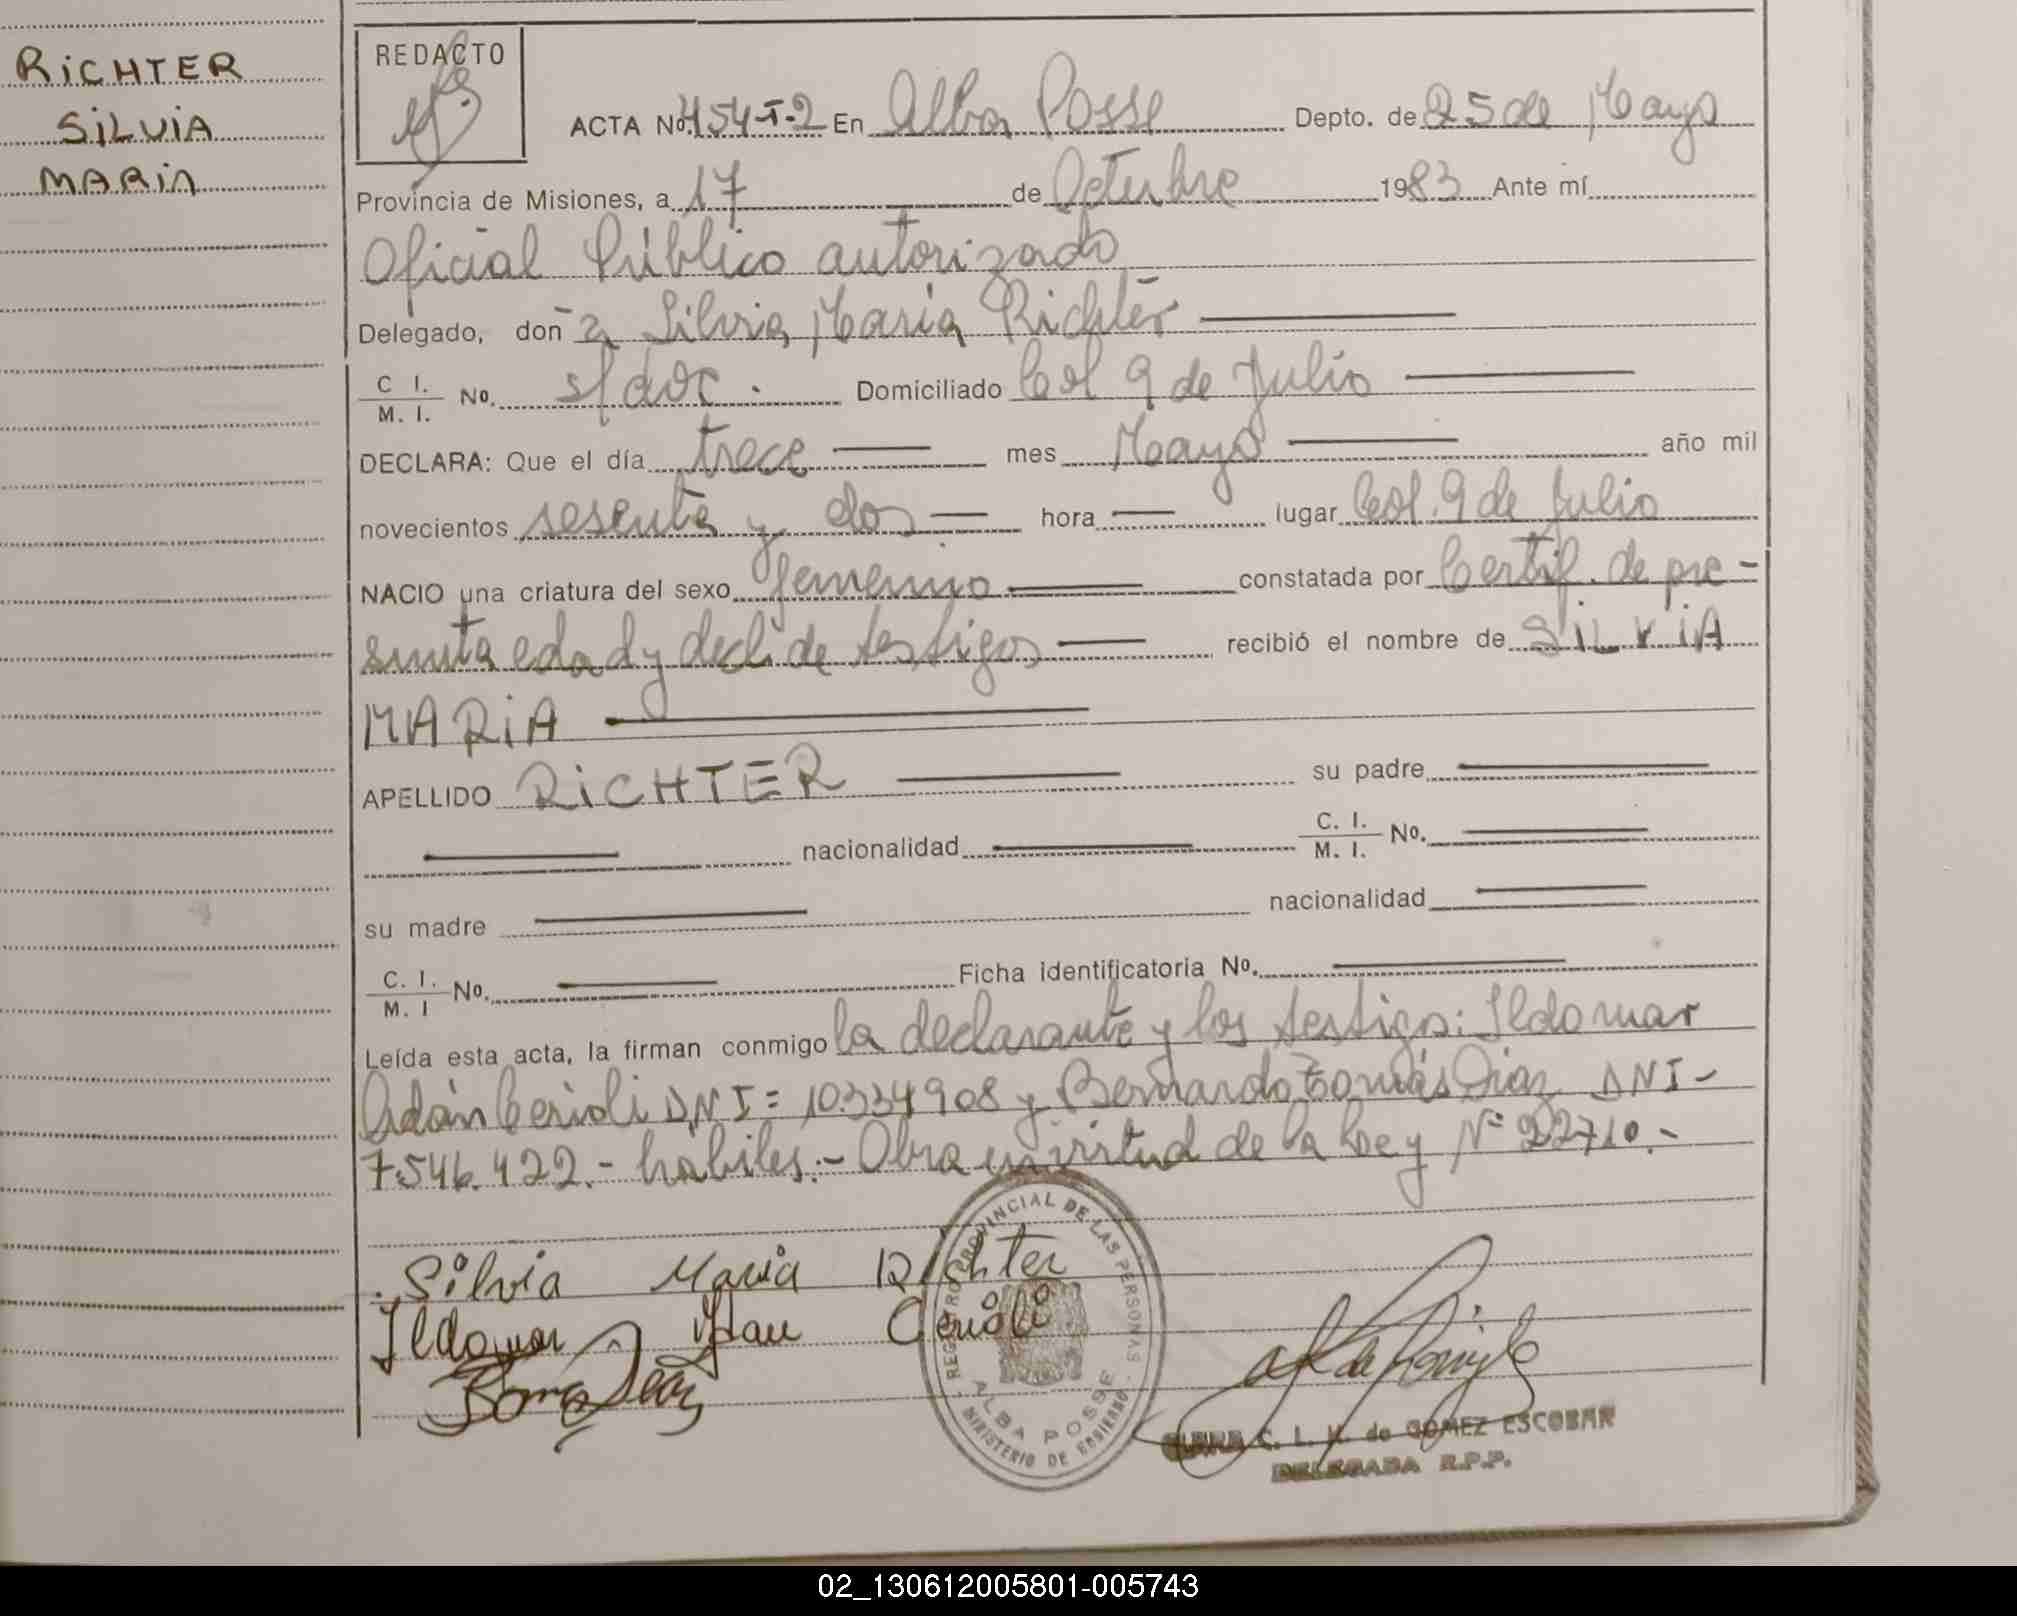 RiCHTER
SiLViA
MARiA
REDACTO
ACTA No. 454-T-2 En Alba Posse Depto. de 25 de Mayo
Provincia de Misiones, a 17 de Octubre 1983 Ante mí
Oficial Público autorizado
Delegado, don a Silvia Maria Richter
C I. / M. I. No. s/doc. Domiciliado Col 9 de Julio
DECLARA: Que el día trece mes Mayo año mil
novecientos sesenta y dos hora lugar Col. 9 de Julio
NACIO una criatura del sexo femenino constatada por Certif. de pre-
sunta edad y decl. de testigos recibió el nombre de SiLViA
MARiA
APELLIDO RiCHTER su padre
nacionalidad C. I. / M. I. No.
su madre nacionalidad
C. I. / M. I No. Ficha identificatoria No.
Leída esta acta, la firman conmigo la declarante y los testigos: Ildomar
Adán Cerioli DNI= 10.334908 y Bernardo Tomás Diaz DNI-
7.546.422.- habiles.- Obra en virtud de la Ley Nº 22710.-
Silvia Maria Richter
Ildomar Adan Cerioli
REGISTRO PROVINCIAL DE LAS PERSONAS
ALBA POSSE
MINISTERIO DE GOBIERNO
C. L. de GOMEZ ESCOBAR
DELEGADA R.P.P.
02_130612005801-005743